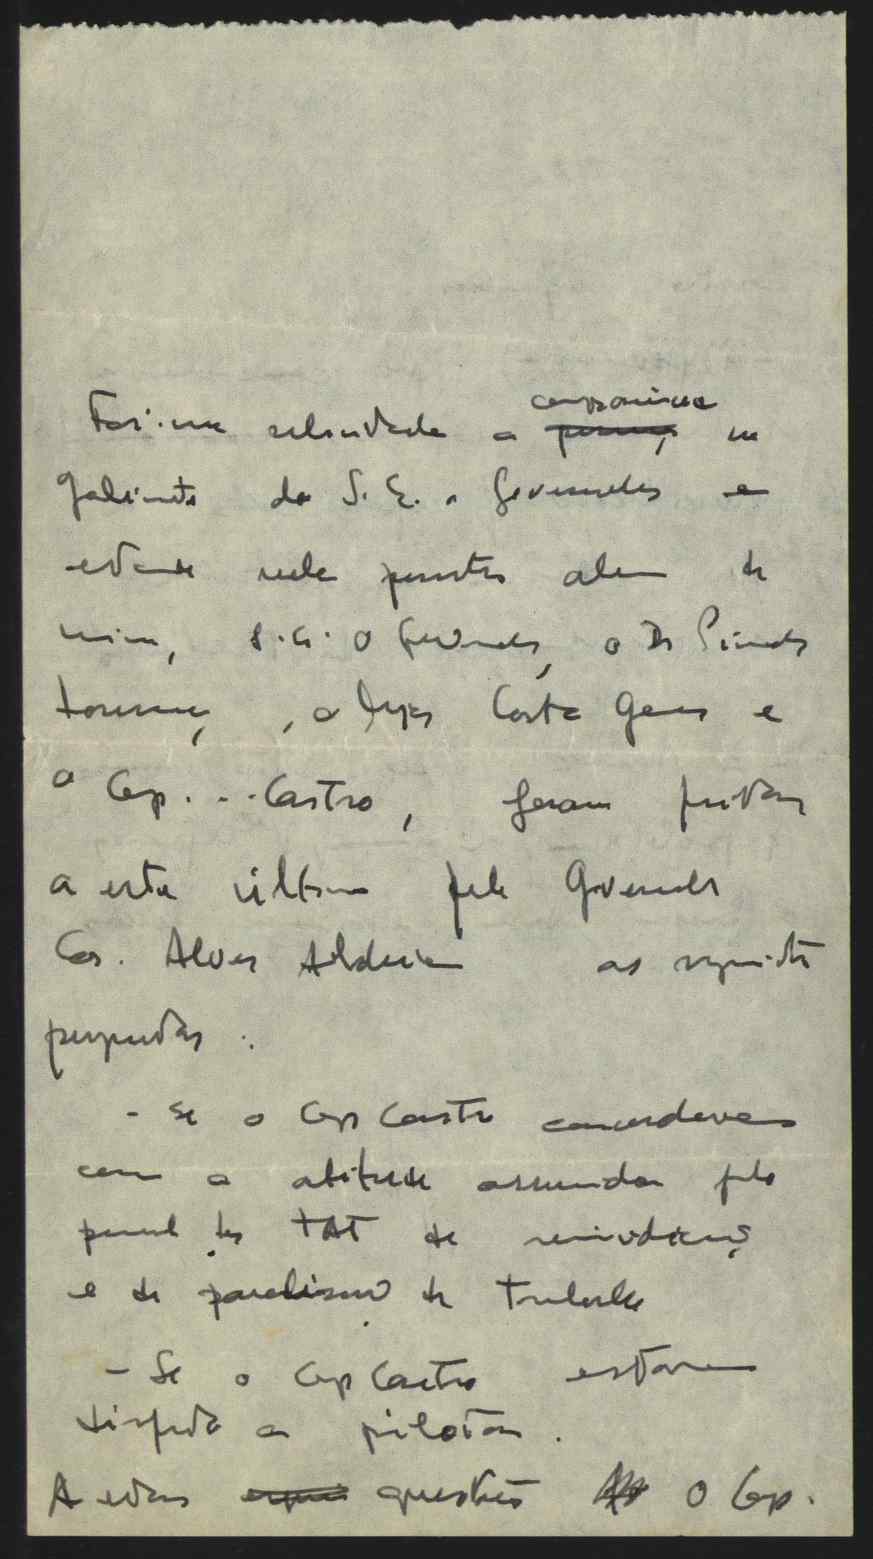 Foi-me solicitada a comparência no
gabinete de S. E. o Governador e
estando nele presentes alem de
mim, S. E. o Governador, o Dr
, o Major Costa Gomes e
o Cap. ... Castro, foram feitas
a este último pelo Governador
Cor. Alves Aldeia as seguintes
perguntas:
- Se o Cap Castro concordava
com a atitude assumida pelo
pessoal dos TAT de reivindicação
e de paralisação de trabalho
- Se o Cap Castro estava
disposto a pilotar.
A estas questões o Cap.